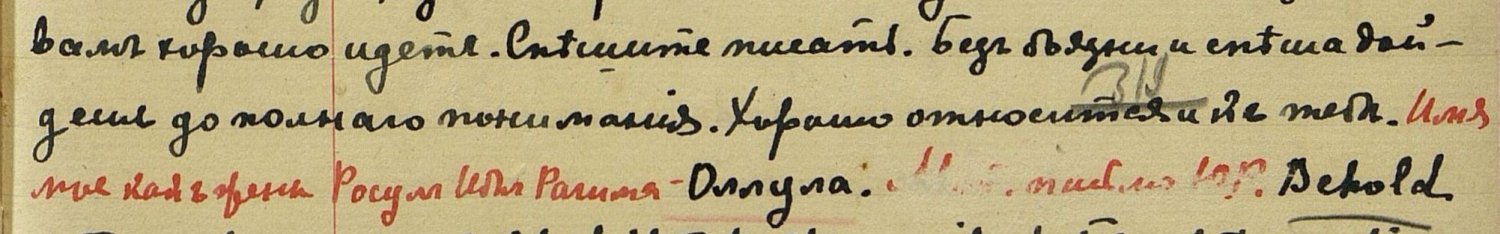 вамъ хорошо идетъ. Спѣшите писать. Безъ боязни и спѣша дой-
демъ до полнаго пониманія. Хорошо относится и къ тебѣ. Имя
мое какъ жены Росулъ Ибнъ Рагима - Оллула. письмо Ю.Р. Behold